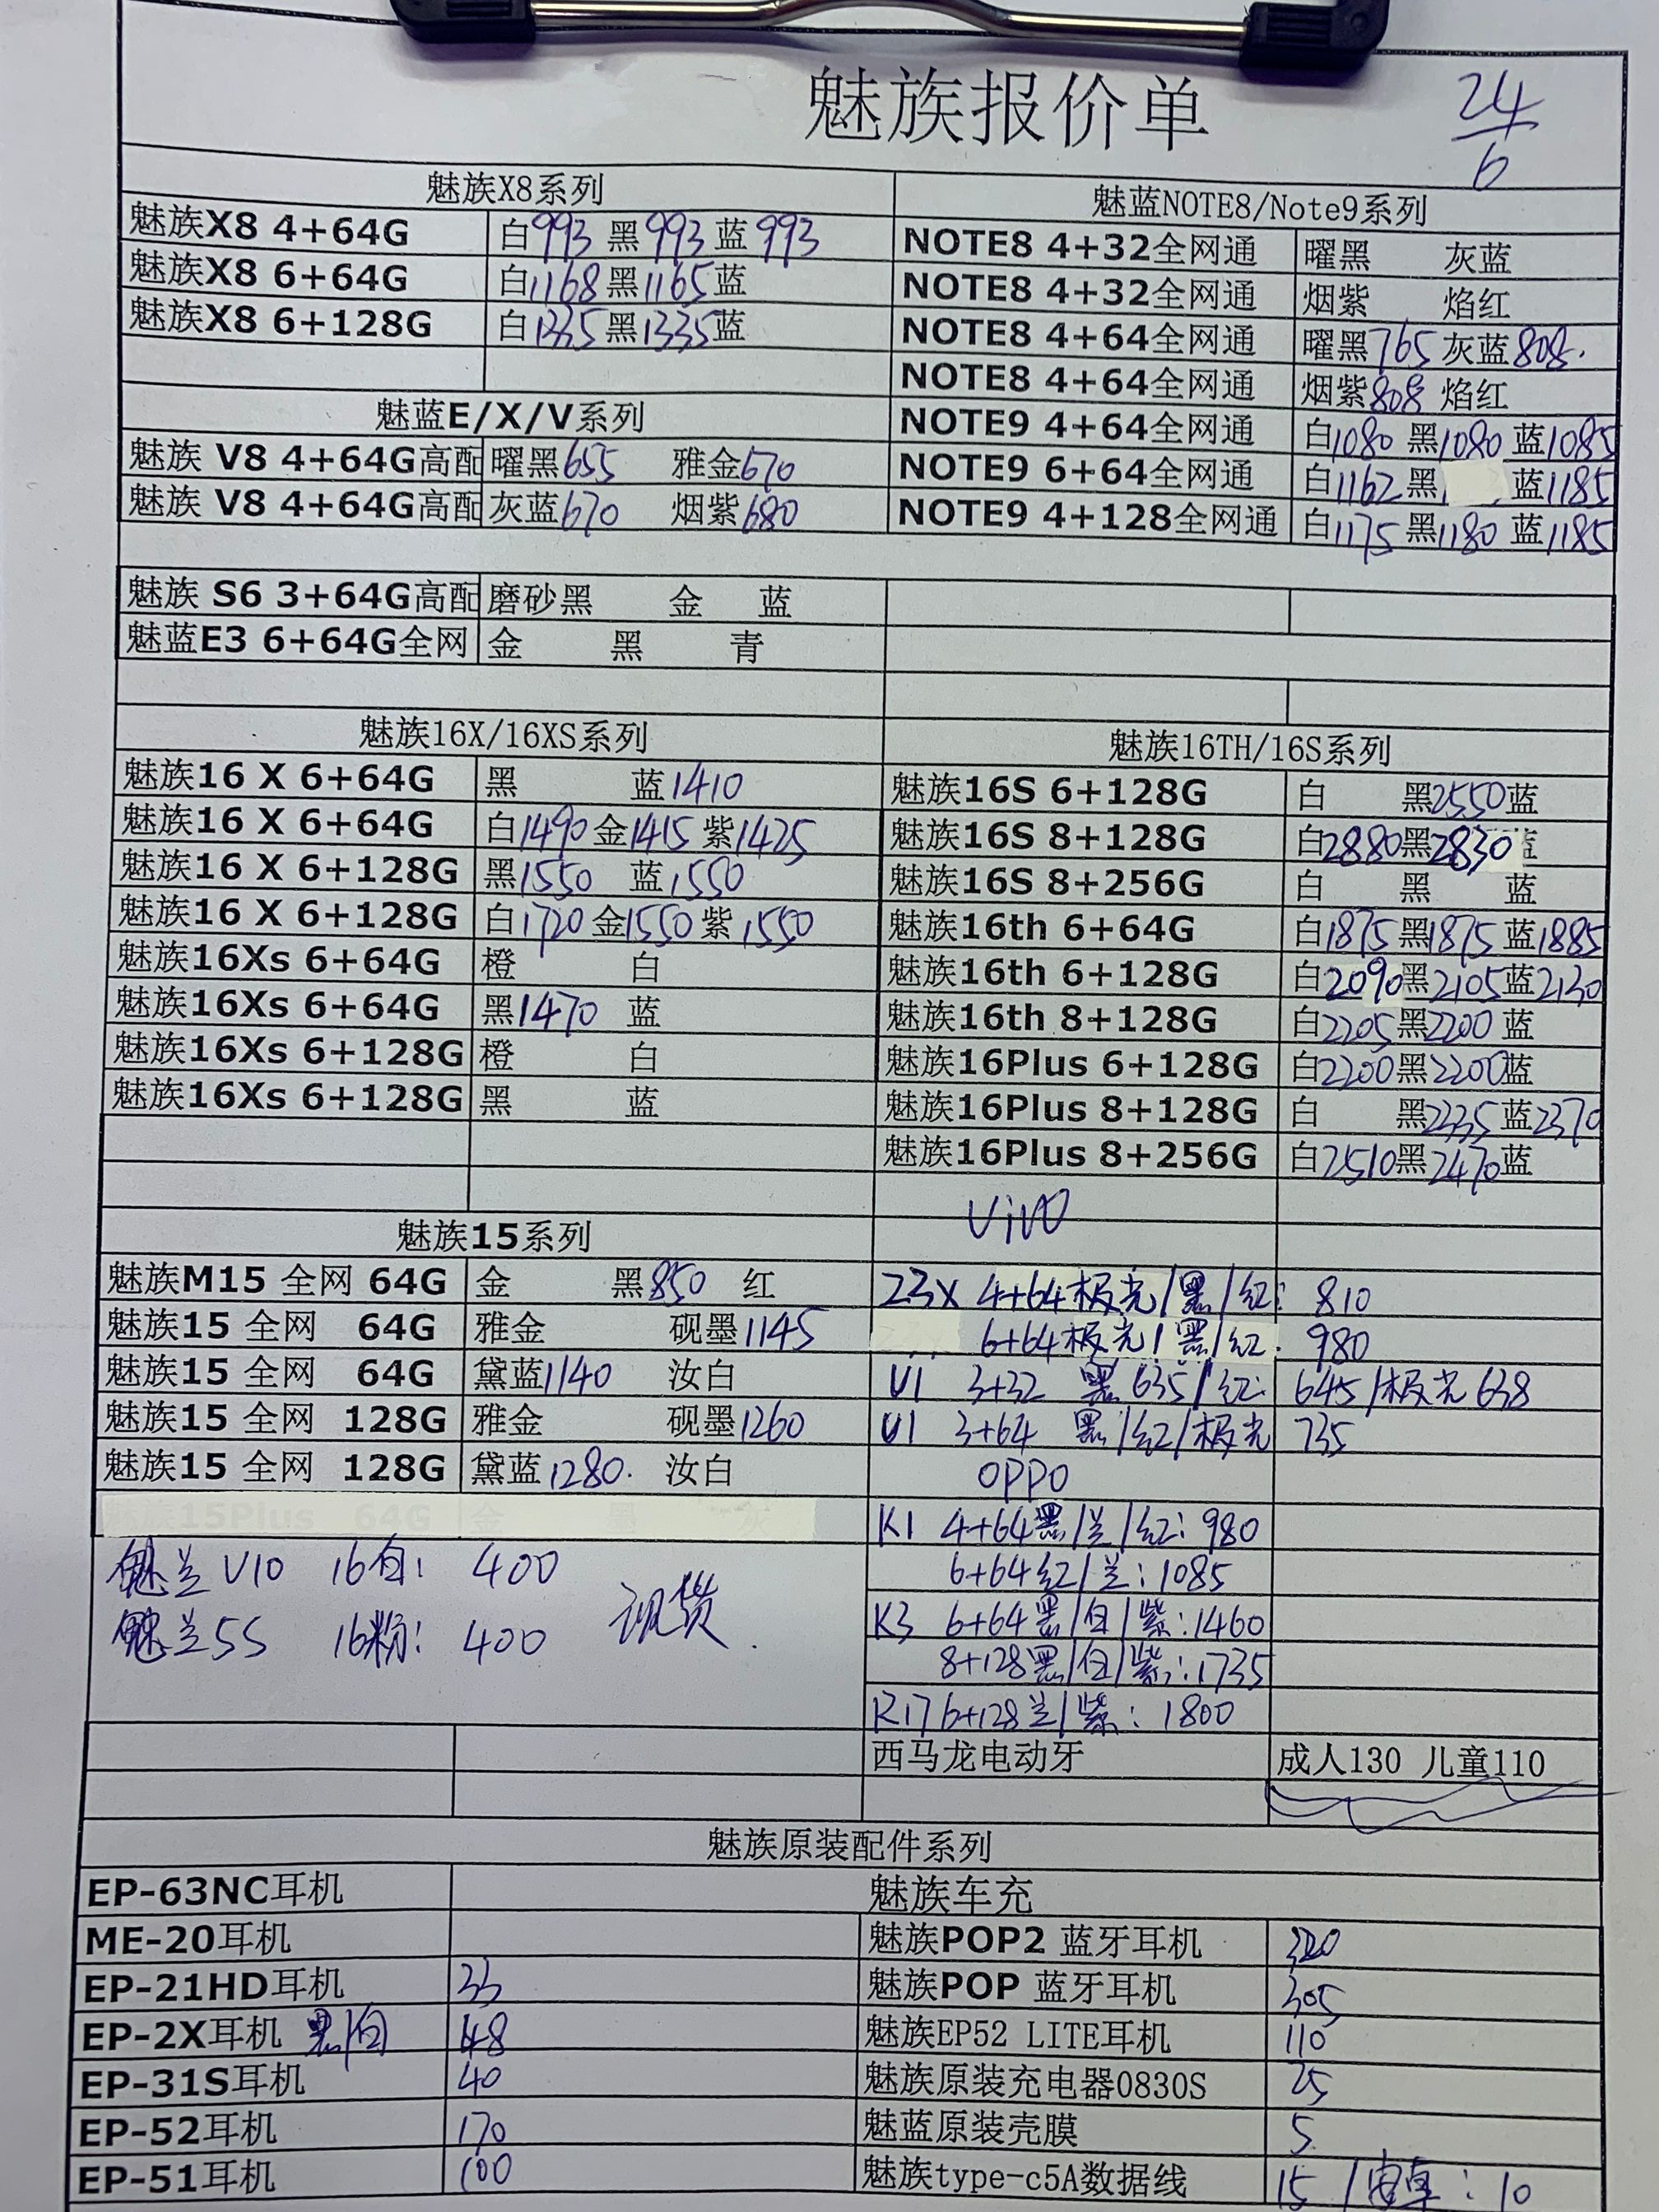 魅族报价单
24/6
魅族X8系列
魅族X8 4+64G 白993 黑993 蓝993
魅族X8 6+64G 白1168 黑1165 蓝
魅族X8 6+128G 白1335 黑1335 蓝
魅蓝E/X/V系列
魅族 V8 4+64G高配 曜黑655 雅金670
魅族 V8 4+64G高配 灰蓝670 烟紫680
魅族 S6 3+64G高配 磨砂黑 金 蓝
魅蓝E3 6+64G全网 金 黑 青
魅蓝NOTE8/Note9系列
NOTE8 4+32全网通 曜黑 灰蓝
NOTE8 4+32全网通 烟紫 焰红
NOTE8 4+64全网通 曜黑765 灰蓝808.
NOTE8 4+64全网通 烟紫808 焰红
NOTE9 4+64全网通 白1080 黑1080 蓝1085
NOTE9 6+64全网通 白1162 黑 蓝1185
NOTE9 4+128全网通 白1175 黑1180 蓝1185
魅族16X/16XS系列
魅族16 X 6+64G 黑 蓝1410
魅族16 X 6+64G 白1490 金1415 紫1425
魅族16 X 6+128G 黑1550 蓝1550
魅族16 X 6+128G 白1720 金1550 紫1550
魅族16Xs 6+64G 橙 白
魅族16Xs 6+64G 黑1470 蓝
魅族16Xs 6+128G 橙 白
魅族16Xs 6+128G 黑 蓝
魅族16TH/16S系列
魅族16S 6+128G 白 黑2550 蓝
魅族16S 8+128G 白2880 黑2830 蓝
魅族16S 8+256G 白 黑 蓝
魅族16th 6+64G 白1875 黑1875 蓝1885
魅族16th 6+128G 白2090 黑2105 蓝2130
魅族16th 8+128G 白2205 黑2200 蓝
魅族16Plus 6+128G 白2200 黑2200 蓝
魅族16Plus 8+128G 白 黑2335 蓝2370
魅族16Plus 8+256G 白2510 黑2470 蓝
魅族15系列
魅族M15 全网 64G 金 黑850 红
魅族15 全网 64G 雅金 砚墨1145
魅族15 全网 64G 黛蓝1140 汝白
魅族15 全网 128G 雅金 砚墨1260
魅族15 全网 128G 黛蓝1280. 汝白
魅族15Plus 64G 金 黑 灰
魅兰V10 16白: 400
魅兰5S 16粉: 400
现货.
vivo
Z3x 4+64极光/黑/红: 810
6+64极光/黑/红: 980
U1 3+32 黑635/红: 645/极光638
U1 3+64 黑/红/极光 735
OPPO
K1 4+64黑/兰/红: 980
6+64红/兰: 1085
K3 6+64黑/白/紫: 1460
8+128黑/白/紫: 1735
R17 6+128兰/紫: 1800
西马龙电动牙 成人130 儿童110
魅族原装配件系列
EP-63NC耳机 魅族车充
ME-20耳机 魅族POP2 蓝牙耳机 320
EP-21HD耳机 33 魅族POP 蓝牙耳机 305
EP-2X耳机 黑/白 48 魅族EP52 LITE耳机 110
EP-31S耳机 40 魅族原装充电器0830S 25
EP-52耳机 170 魅蓝原装壳膜 5
EP-51耳机 100 魅族type-c5A数据线 15 /安卓: 10